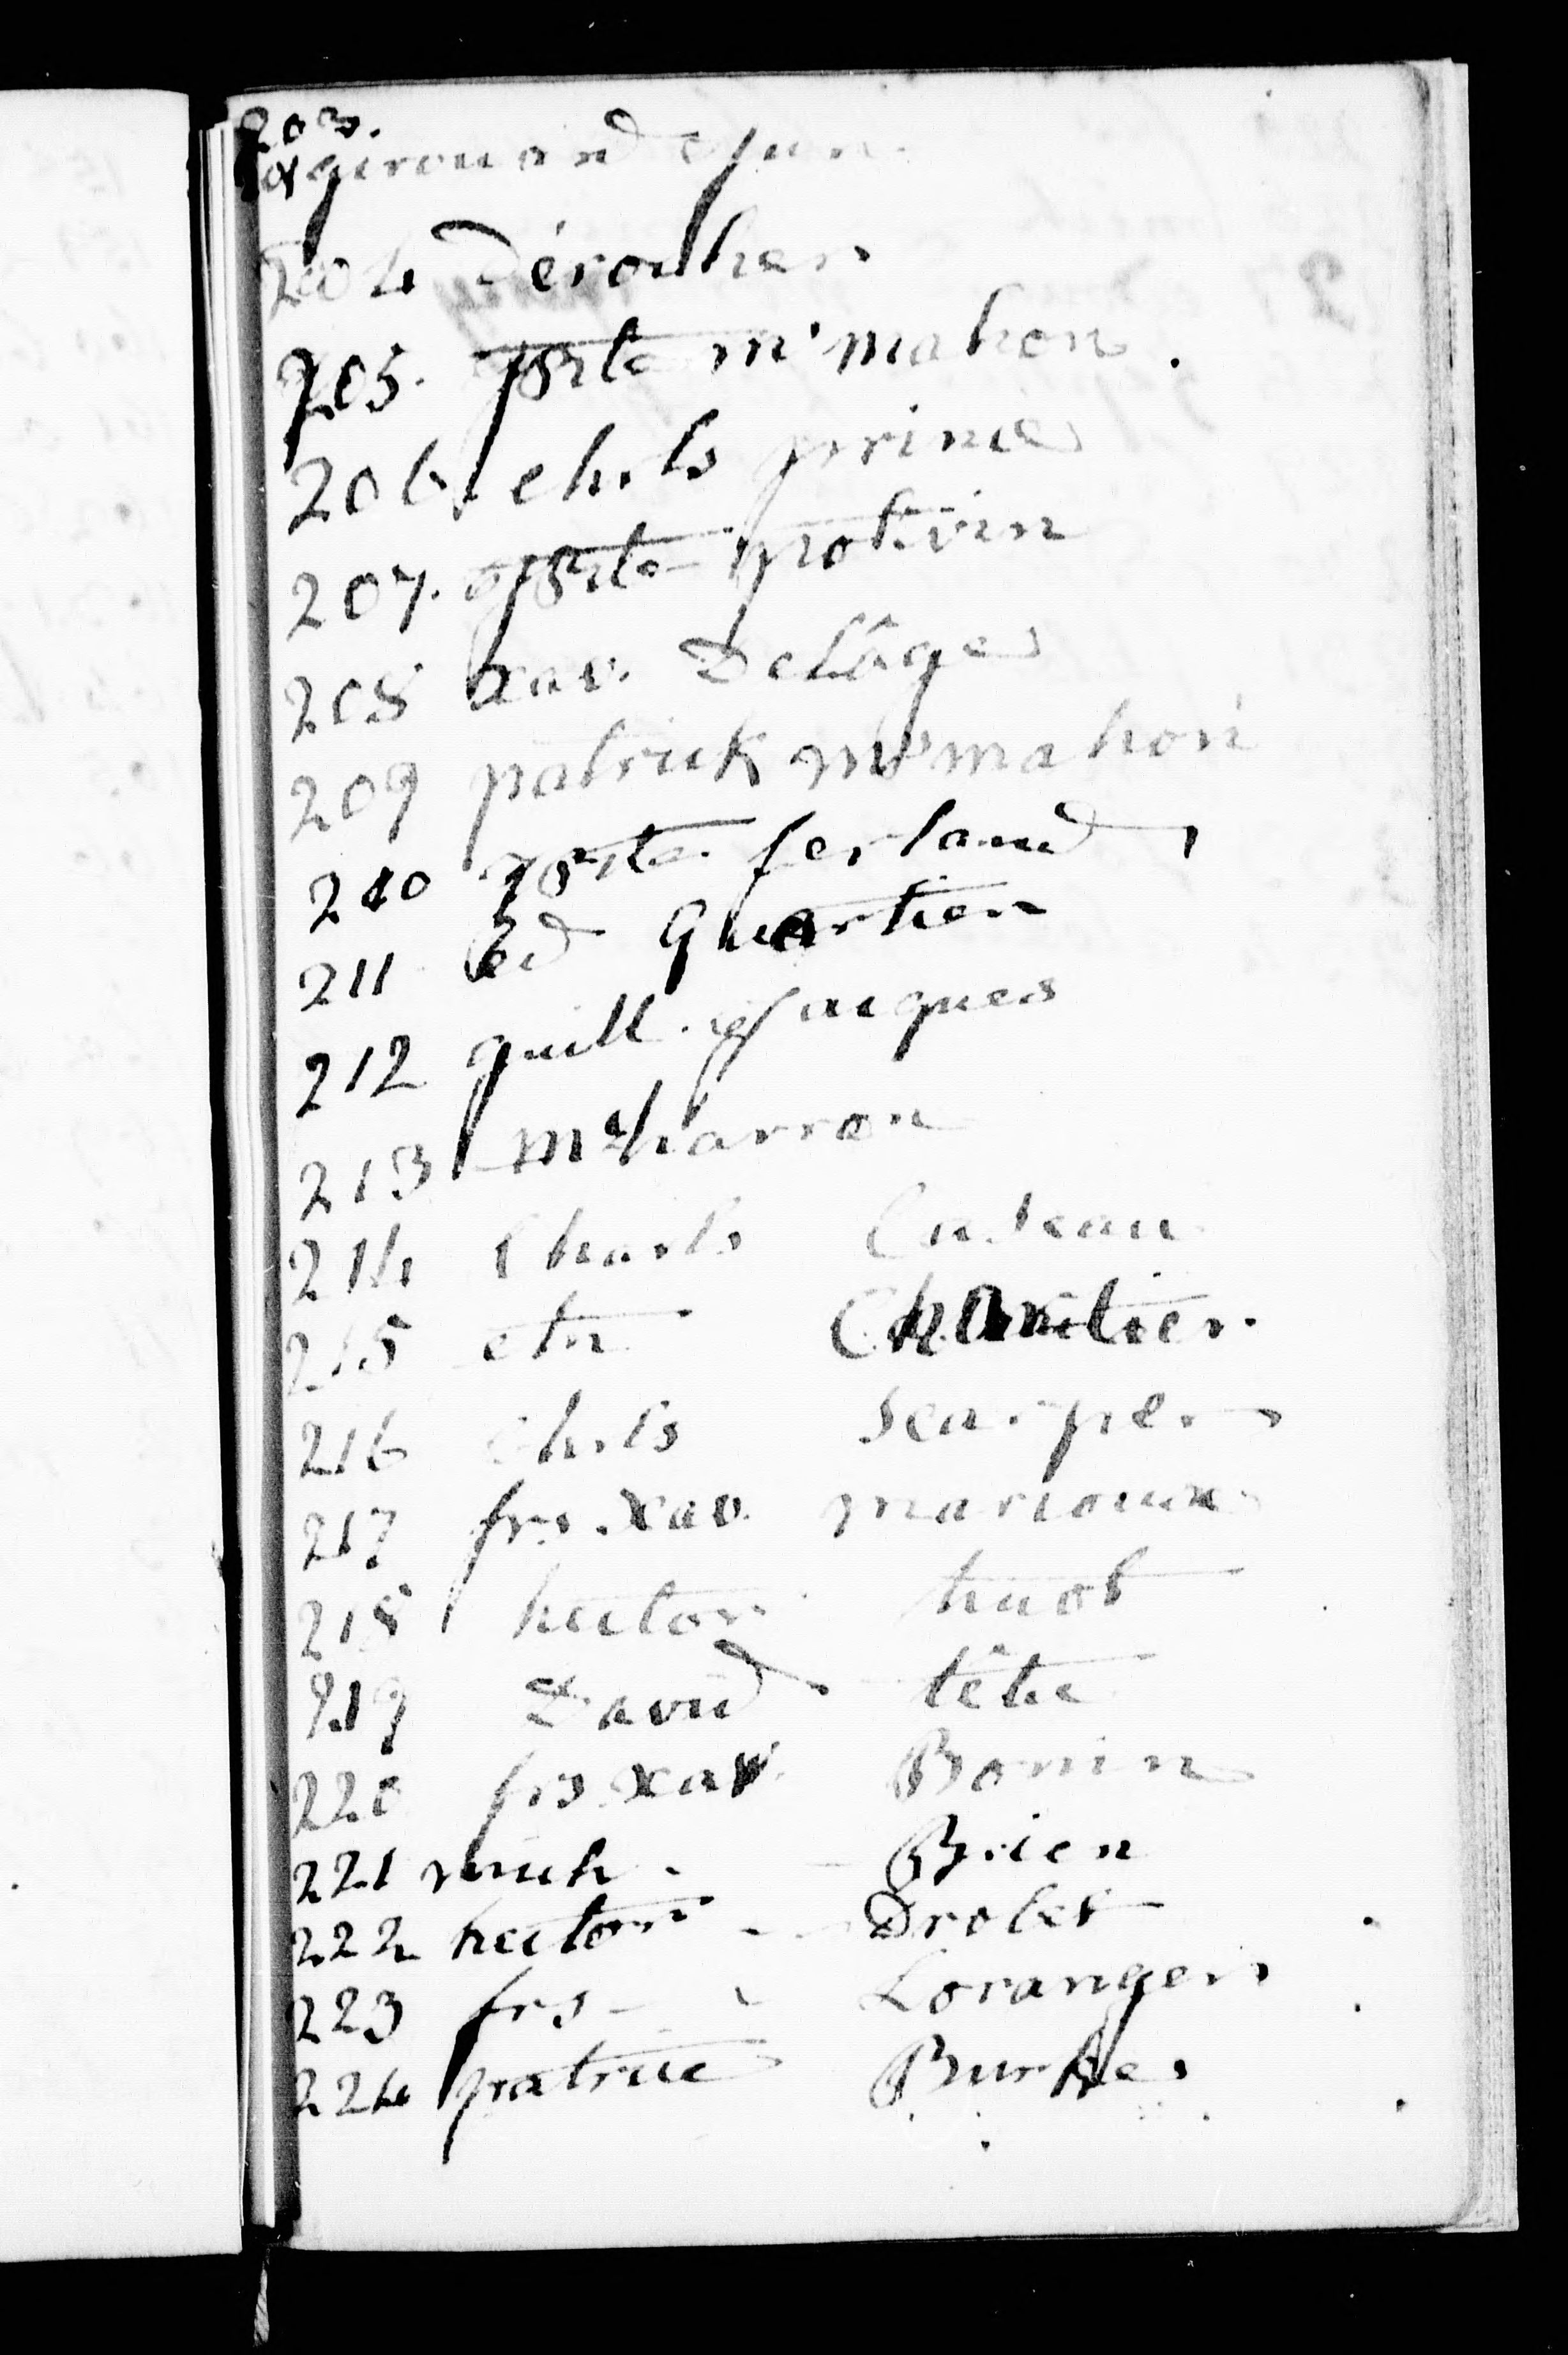 203.
girouard Jun
204 Déroucher
205. jbte mcmahon
206. chrls prince
207. jbte potvin
208 xav. Delâge
209 patrick mcmahon
210 jbte ferland
211 Ed Quartier
212 guill. Jacques
213 mcharron
214 Charls
215 etn
216 Chrls
217 frs. Xav. marioux
218 hector huot
219 David têtu
220 frs. xav Bonin
221 mich. Brien
222 hector Drolet
223 frs - Loranger
224 patrice Burke